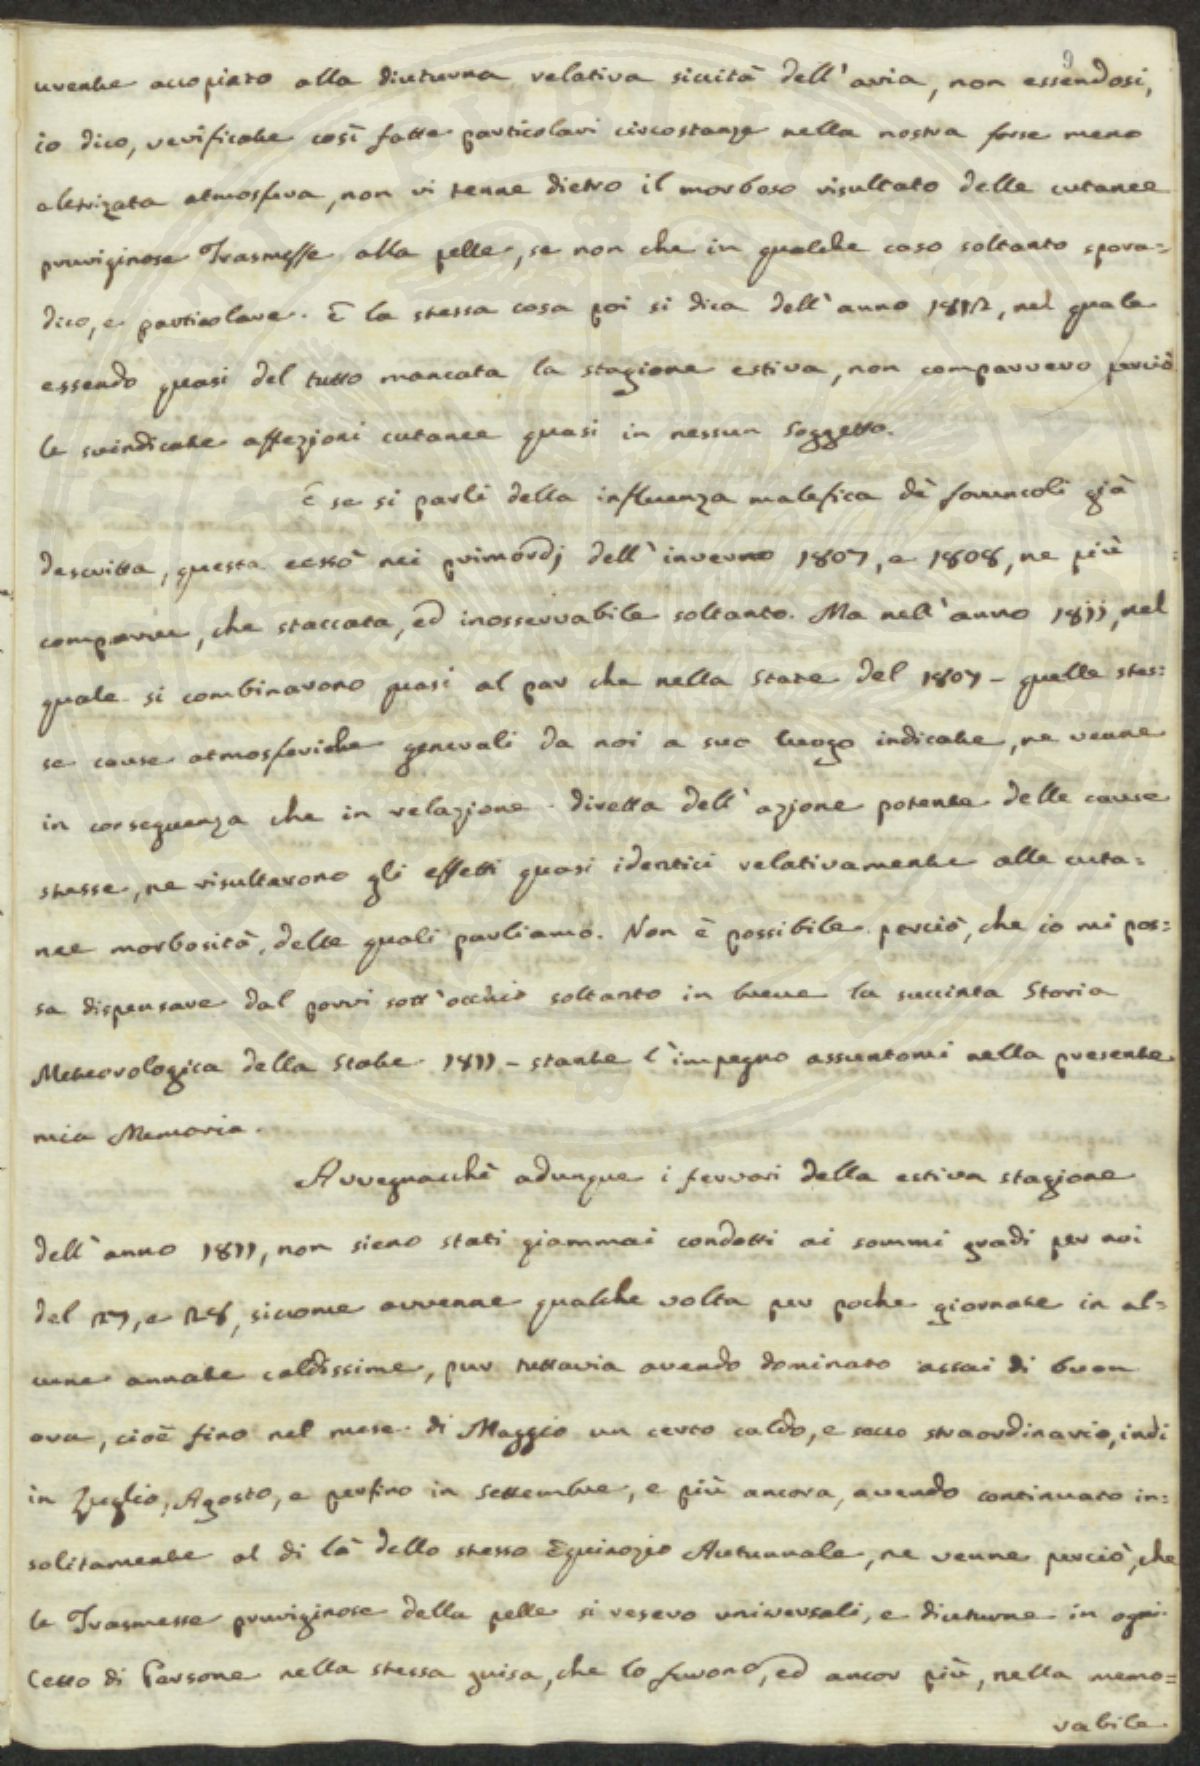 uvente accopiato alla diuturna relativa siccità dell'aria, non essendosi,
io dico, verificate così fatte particolari circostanze nella nostra forse meno
aletrizata atmosfera, non vi tenne dietro il morboso risultato delle cutanee
pruriginose Trasmesse alla pelle, se non che in qualche caso soltanto spora=
dico, e particolare. E la stessa cosa poi si dica dell'anno 1812, nel quale
essendo quasi del tutto mancata la stagione estiva, non comparvero perciò
le suindicate affezioni cutanee quasi in nessun Soggetto.
E se si parli della influenza malefica dè foruncoli già
descritta, questa cessò nei primordj dell'inverno 1807, e 1808, ne più
comparve, che staccata, ed inosservabile soltanto. Ma nell'anno 1811, nel
quale si combinarono quasi al par che nella State del 1807 - quelle stes=
se cause atmosferiche generali da noi a suo luogo indicate, ne venne
in conseguenza che in relazione diretta dell'azione potente delle cause
stesse, ne risultarono gli effetti quasi identici relativamente alle cuta=
nee morbosità, delle quali parliamo. Non è possibile perciò, che io mi pos=
sa dispensare dal porvi sott'occhio soltanto in breve la succinta Storia
Meteorologica della State 1811 - stante l'impegno assuntomi nella presente
mia Memoria.
Avvegnacchè adunque i fervori della estiva stagione
dell'anno 1811, non sieno stati giammai condotti ai sommi gradi per noi
del 27, e 28, siccome avvenne qualche volta per poche giornate in al=
cune annate caldissime, pur tuttavia avendo dominato assai di buon
ora, cioè fino nel mese di Maggio un certo caldo, e secco straordinario, indi
in Luglio, Agosto, e perfino in Settembre, e più ancora, avendo continuato in=
solitamente al di là dello stesso Equinozio Autunnale, ne venne perciò, che
le Trasmesse pruriginose della pelle si resero universali, e diuturne in ogni
Cetto di Persone nella stessa guisa, che lo furono, ed ancor più, nella memo=
rabile